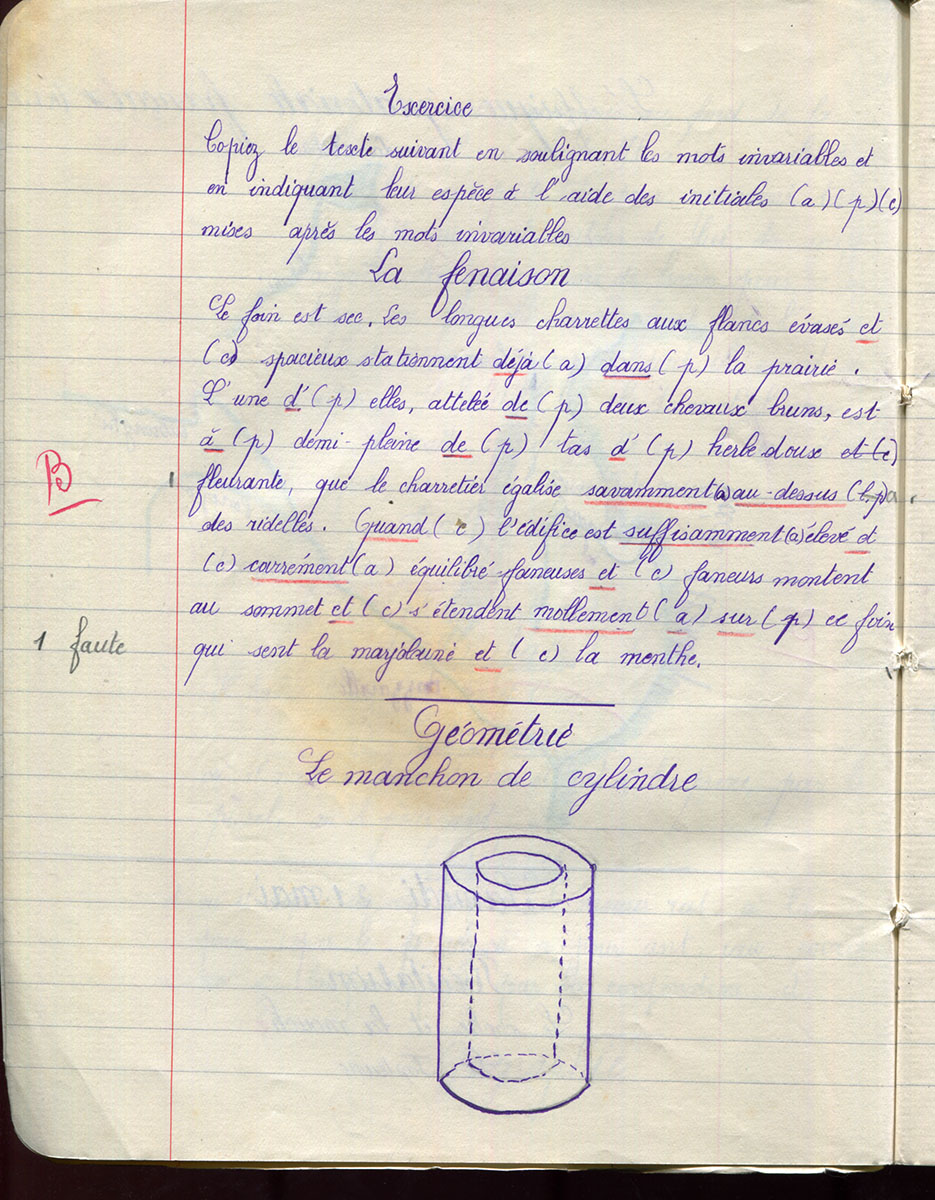 Exercice
Copiez le texte suivant en soulignant les mots invariables et
en indiquant leur espèce à l'aide des initiales (a) (p) (c)
mises après les mots invariables
La fenaison
Le foin est sec. Les longues charrettes aux flancs évasés et
(c) spacieux stationnent déjà (a) dans (p) la prairie.
L'une d' (p) elles, attelée de (p) deux chevaux bruns, est
à (p) demi-pleine de (p) tas d' (p) herbe doux et (c)
B
fleurante, que le charretier égalise savamment (a) au-dessus (p) a.
des ridelles. Quand (c) l'édifice est suffisamment (a) élevé et
(c) carrément (a) équilibré faneuses et (c) faneurs montent
au sommet et (c) s'étendent mollement (a) sur (p) ce foin
1 faute
qui sent la marjolaine et (c) la menthe.
Géométrie
Le manchon de cylindre